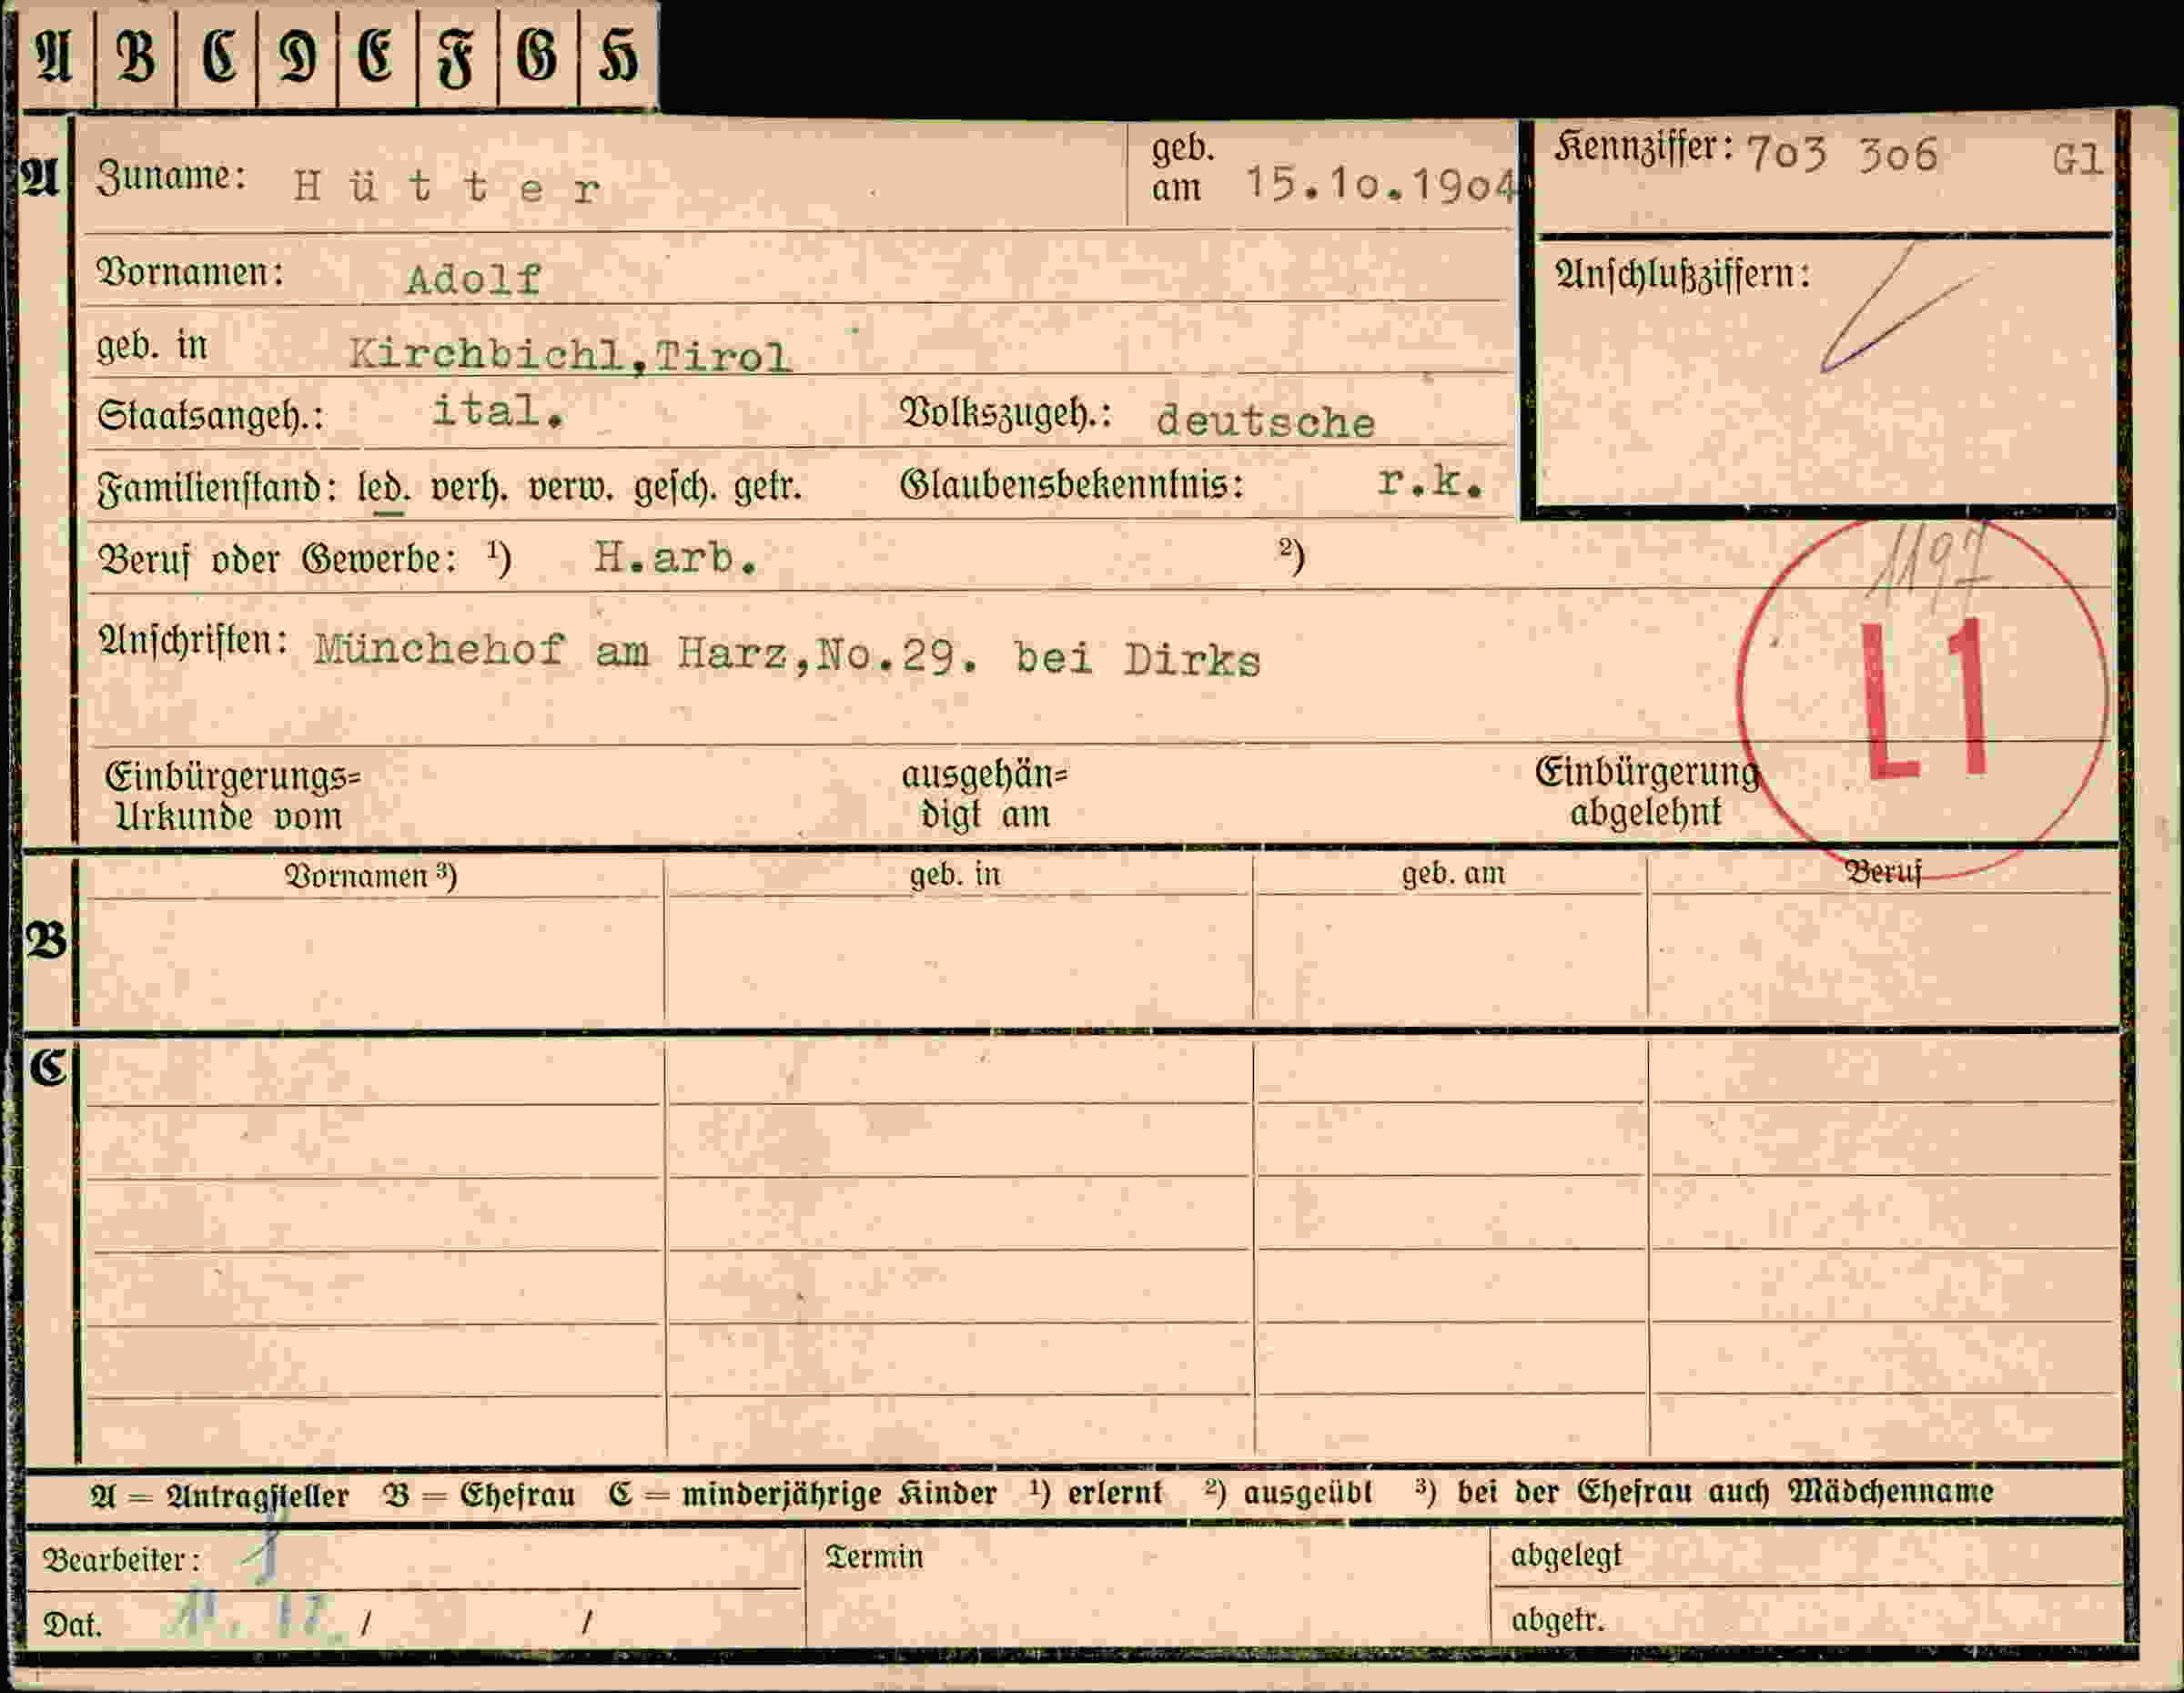 A B C D E F G H
A Zuname: Hütter geb. am 15.10.1904 Kennziffer: 703 306 Gl
Vornamen: Adolf Anschlußziffern:
geb. in Kirchbichl,Tirol
Staatsangeh.: ital. Volkszugeh.: deutsche
Familienstand: led. verh. verw. gesch. getr. Glaubensbekenntnis: r.k.
Beruf oder Gewerbe: ¹) H.arb. ²) 1197
Anschriften: Münchehof am Harz,No.29. bei Dirks
L1
Einbürgerungs= ausgehän= Einbürgerung
Urkunde vom digt am abgelehnt
Vornamen ³) geb. in geb. am Beruf
B
C
A = Antragsteller B = Ehefrau C = minderjährige Kinder ¹) erlernt ²) ausgeübt ³) bei der Ehefrau auch Mädchenname
Bearbeiter: Termin abgelegt
Dat. / / abgetr.